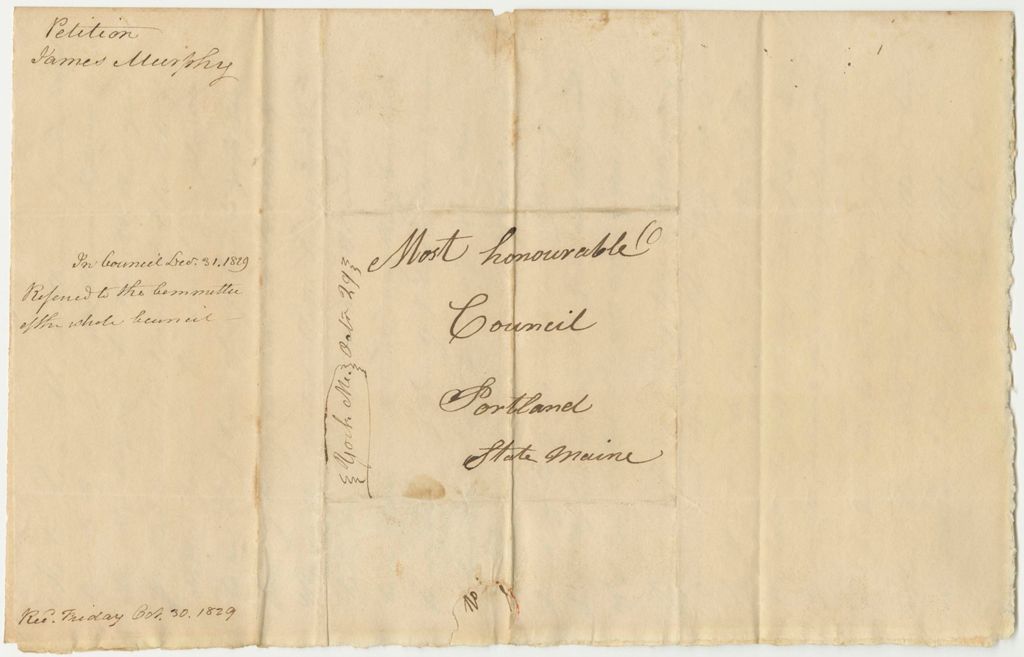 Petition
James Murphy
In Council Dec. 31. 1829
Referred to the Committee
of the whole Council
Rec. Friday Oct. 30. 1829
York Me Octr 29
Most honourable
Council
Portland
State Maine